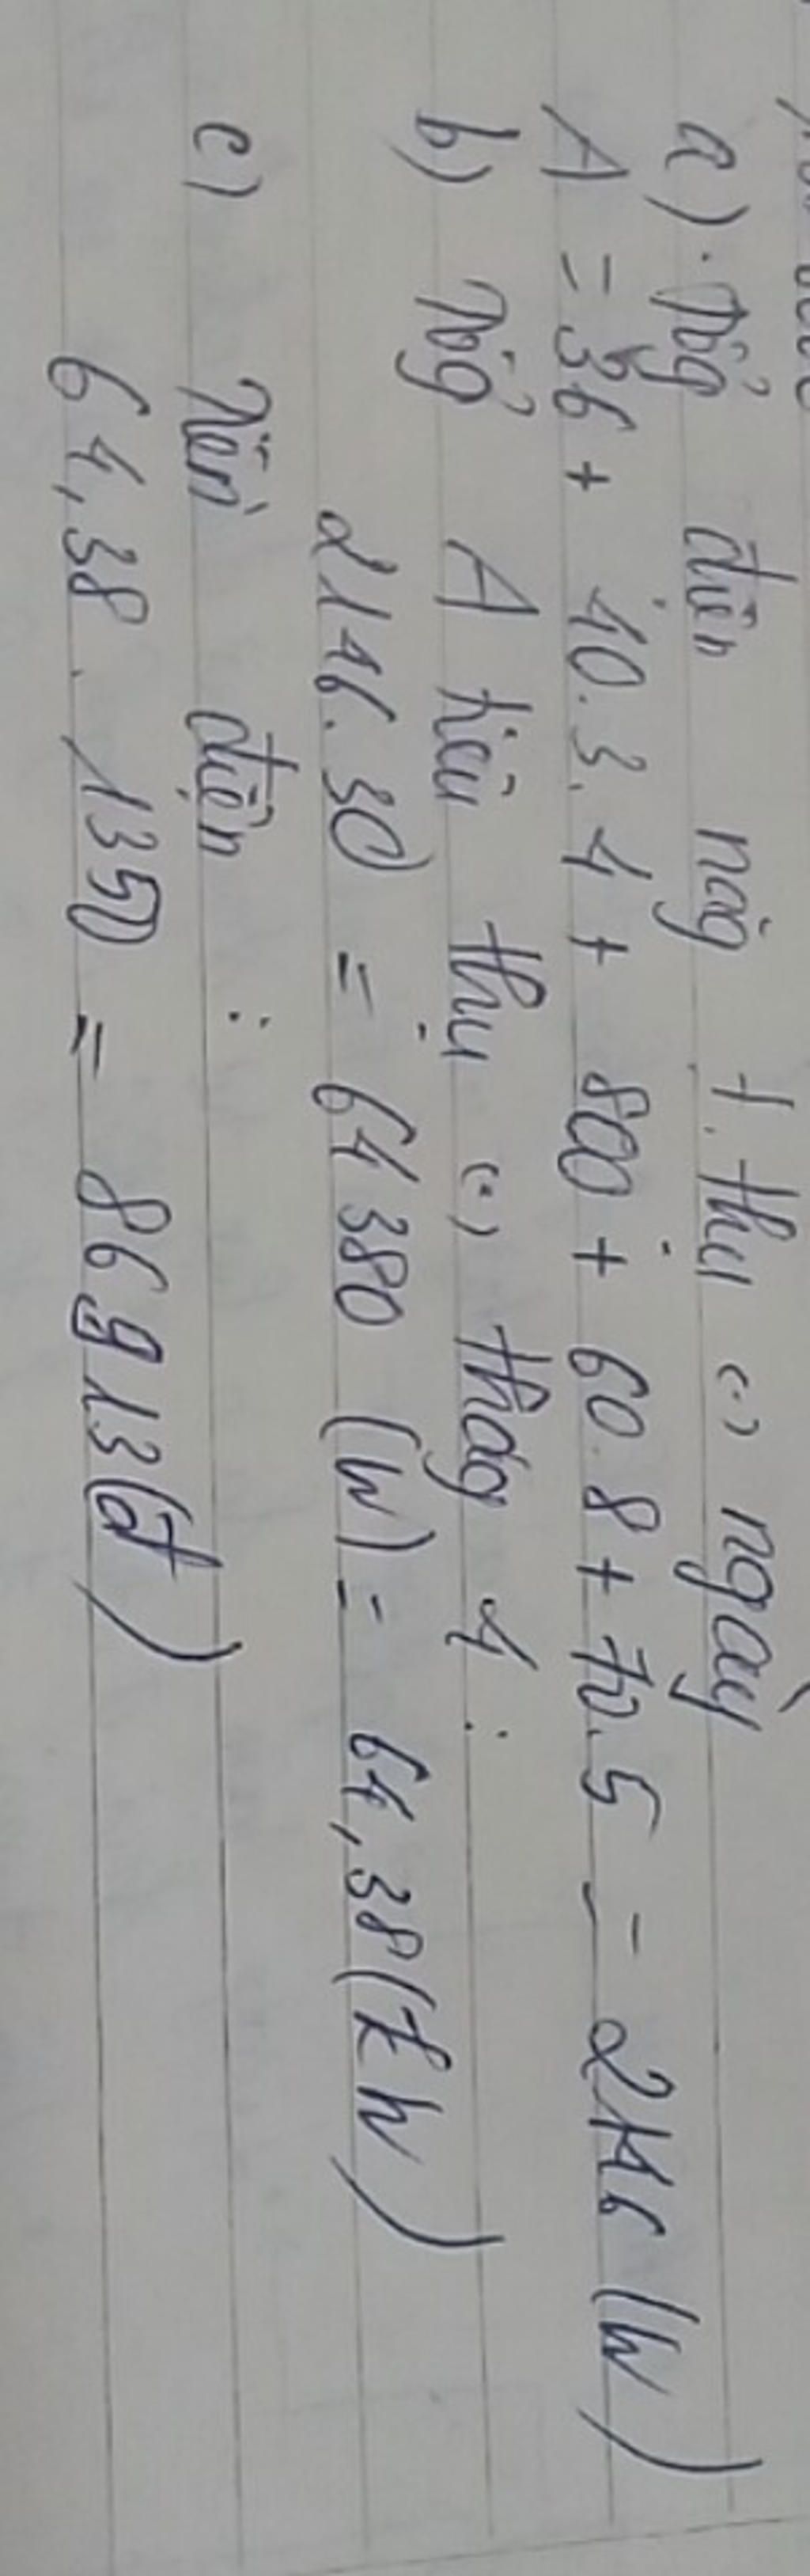 a) Tổg điện năg t. thụ (..) ngày
A = 36 + 40.3.4 + 800 + 60.8 + 70.5 = 2146 (W)
b) Tổg A tiêu thụ (..) thág 4 :
2146.30 = 64380 (W) = 64,38 (kW)
c) Tiền điện :
64,38 . 1350 = 86913 (đ)